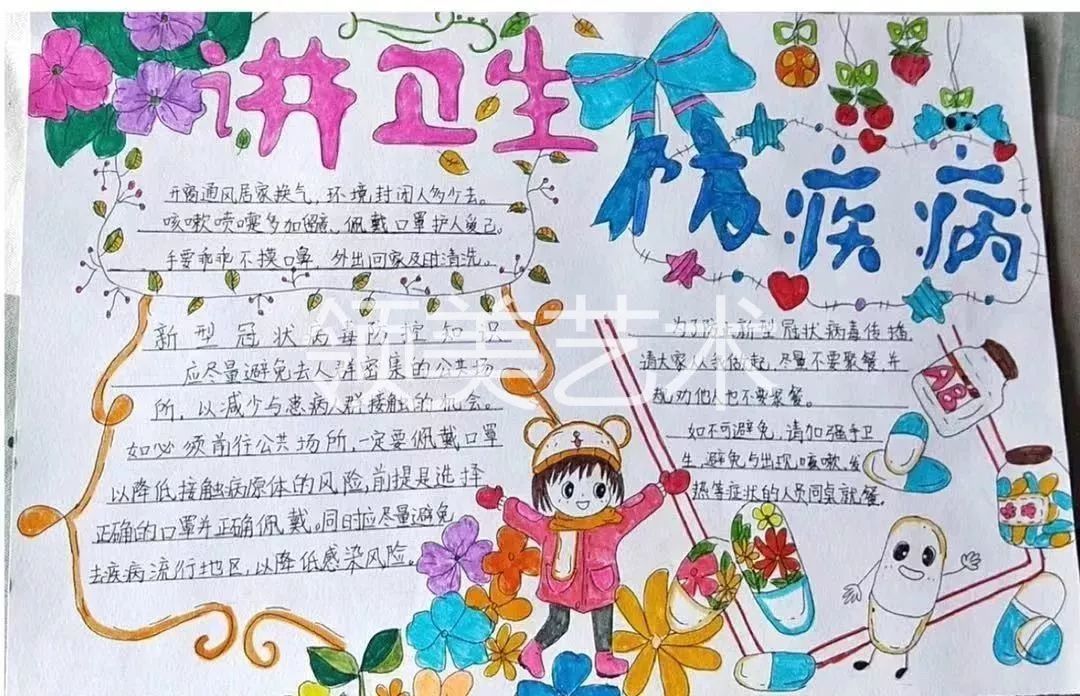 讲卫生
防疾病
开窗通风居家换气，环境封闭人多少去。
咳嗽喷嚏多加留意，佩戴口罩护人爱己。
手要乖乖不摸口鼻，外出回家及时清洗。
新型冠状病毒防控知识
应尽量避免去人群密集的公共场
所，以减少与患病人群接触的机会。
如必须前往公共场所，一定要佩戴口罩
以降低接触病原体的风险，前提是选择
正确的口罩并正确佩戴。同时应尽量避免
去疾病流行地区，以降低感染风险。
为了防止新型冠状病毒传播
请大家从我做起，尽量不要聚餐，并
规劝他人也不要聚餐。
如不可避免，请加强手卫
生，避免与出现咳嗽、发
热等症状的人员同桌就餐。
领美艺术